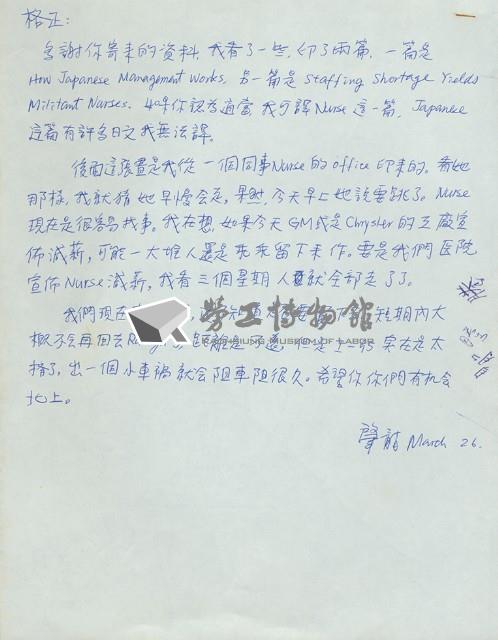 格正：
多謝你寄来的资料，我看了一些，印了兩篇，一篇是
How Japanese Management Works, 另一篇是 Staffing Shortage Yields
Militant Nurses. 如果你認為適當我可譯 Nurse 這一篇, Japanese
這篇有許多日文我無法譯。
後面這張畫是我從一個同事Nurse的office印来的。看她
那樣，我就猜她早晚会走，果然，今天早上她說要跳了。Nurse
現在是很容易找事。我在想，如果今天GM或是Chrysler的工廠宣
佈減薪，可能一大堆人還是乖乖留下来作。要是我們医院
宣佈Nurse減薪，我看三個星期人就全部走了了。
我們現在
短期內大
概不会再回去
實在是太
擠了，出一個小車禍就会阻車阻很久。希望你們有机会
北上。
聲龍 March 26.
勞工博物館
KAOHSIUNG MUSEUM OF LABOR